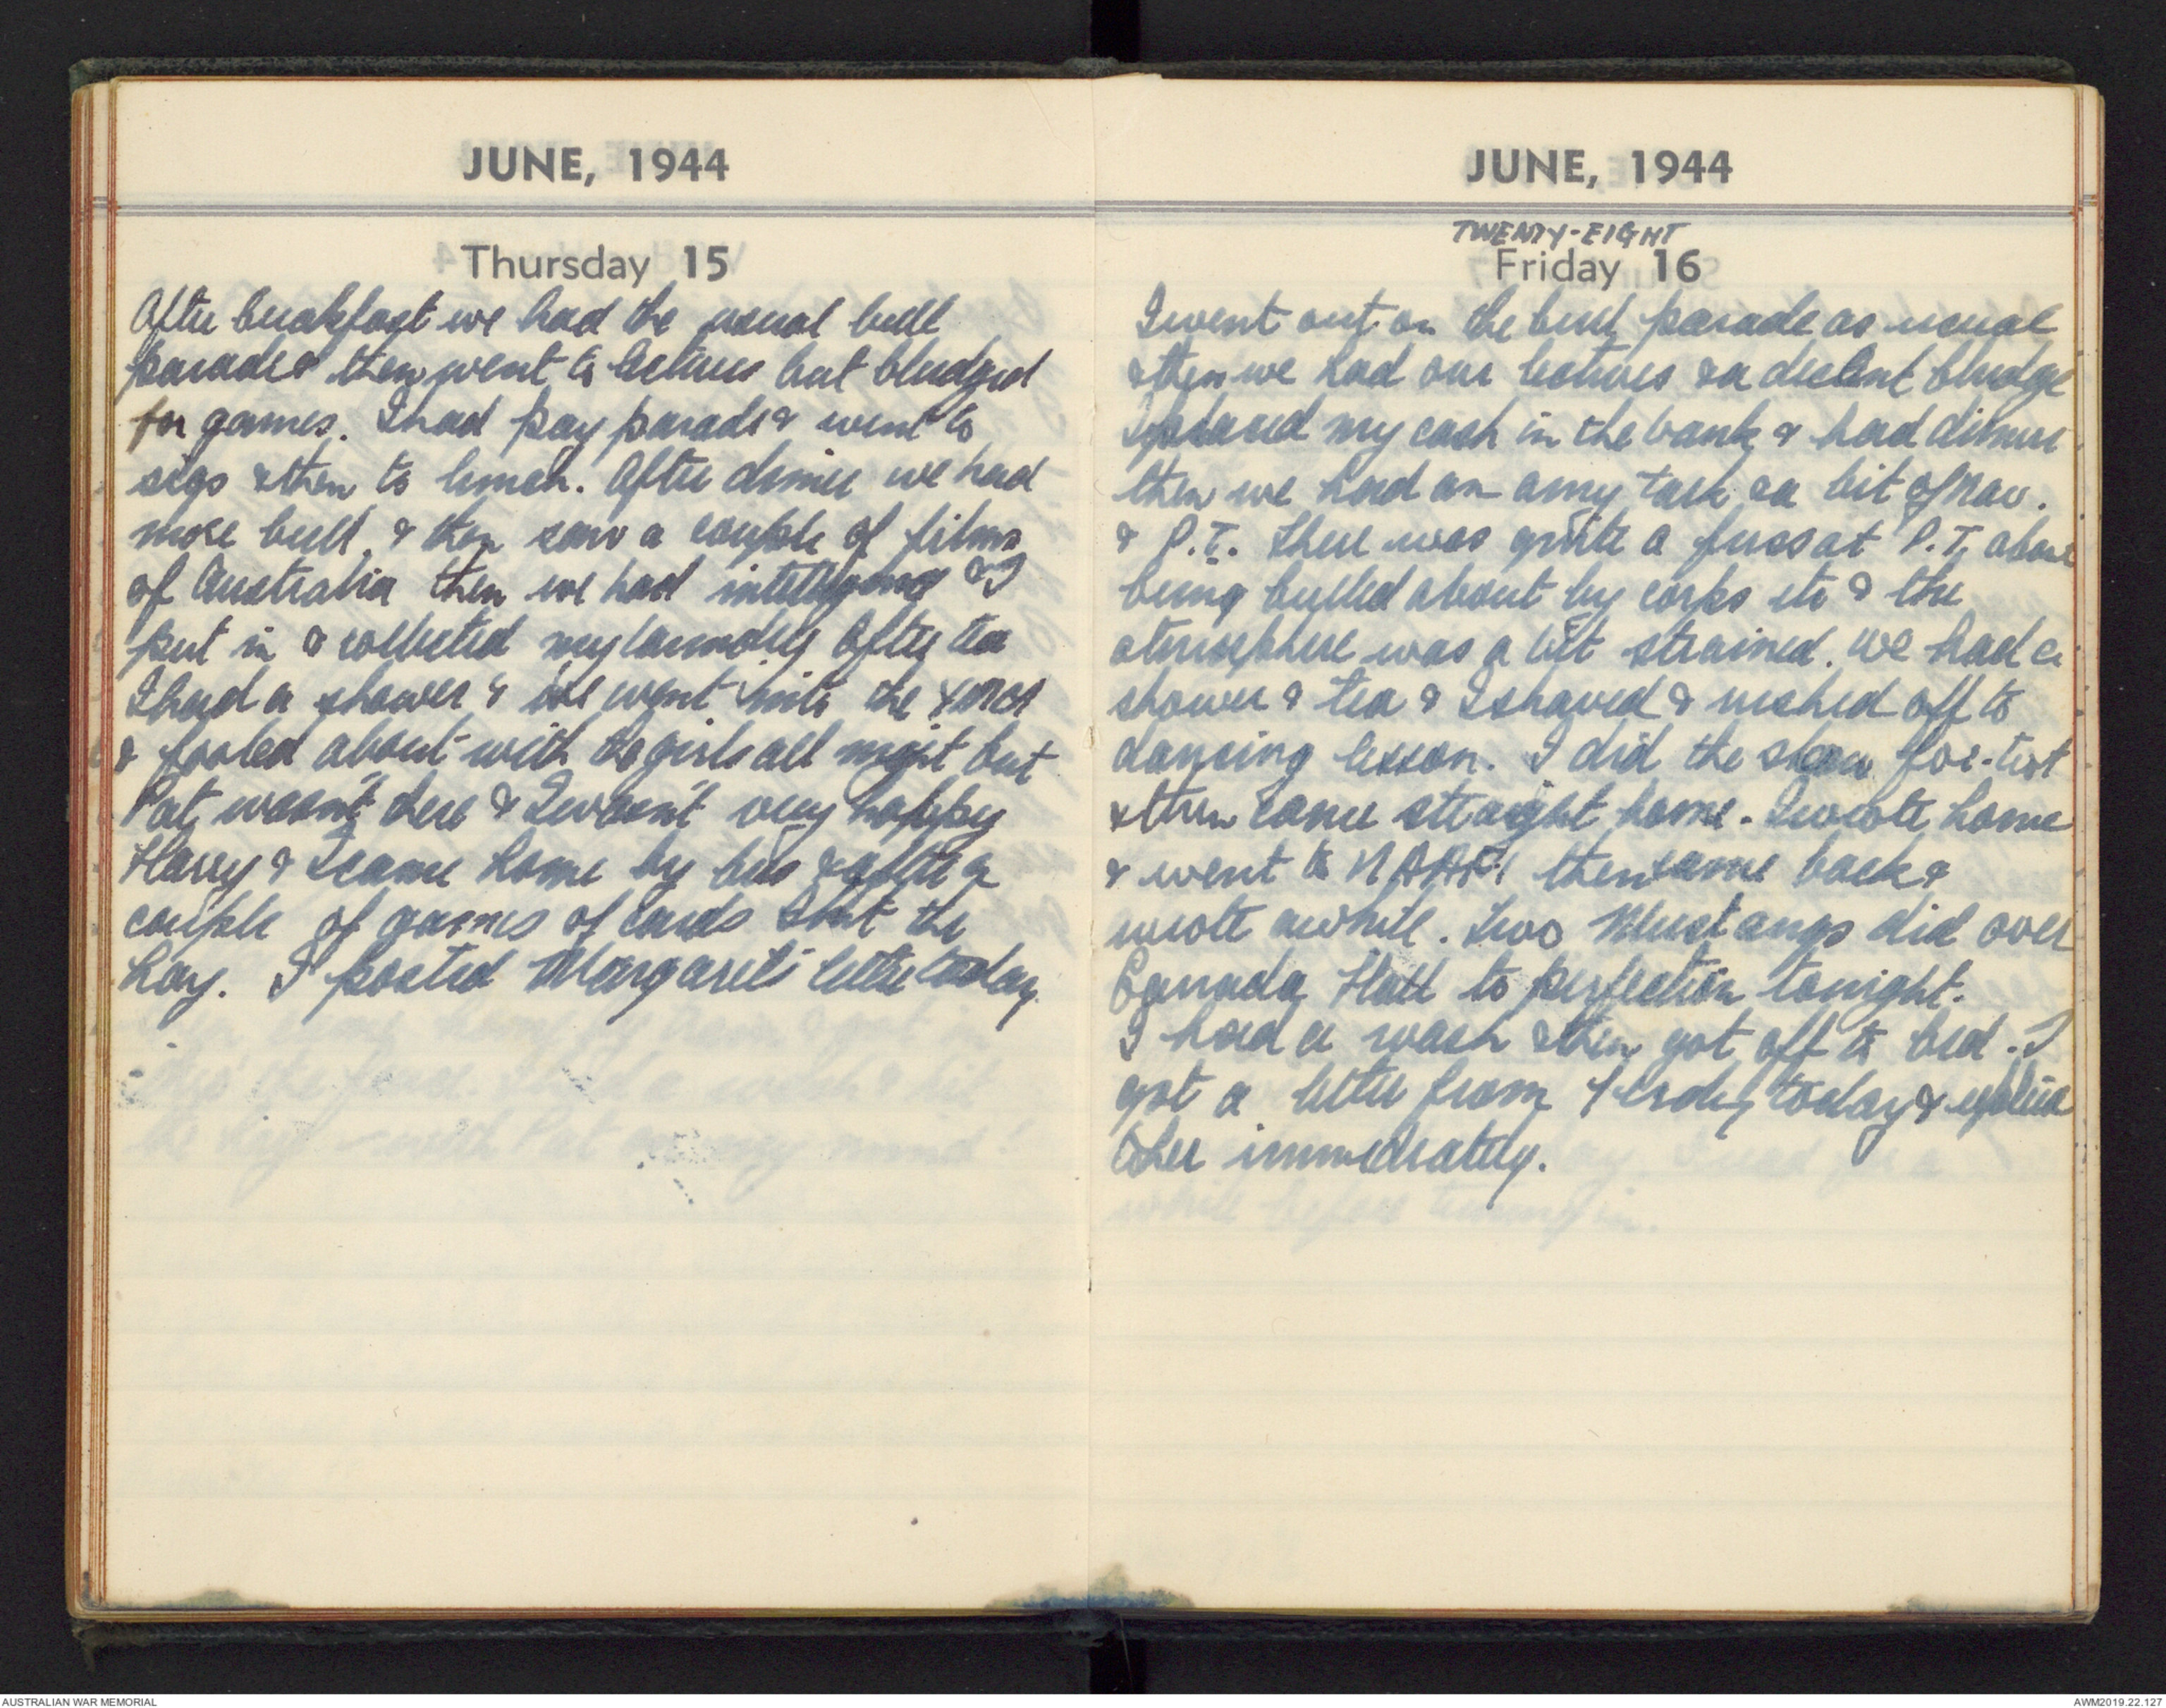 JUNE, 1944
Thursday 15
After breakfast we had the usual bull
parade & then went to lectures but bludged
for games. I had pay parade & went to
sigs & then to lunch. After dinner we had
more bull & then saw a couple of films
of Australia then we had intelligence & I
put in & collected my laundry After tea
I had a shower & we went into the
& fooled about with the girls all night but
Pat wasn't there & I wasn't very happy
Harry & I came home by bus & after a
couple of games of cards I hit the
hay. I posted Margaret's letter today.
JUNE, 1944
TWENTY-EIGHT
Friday 16
I went out on the bull parade as usual
& then we had our lectures & a decent bludge
I placed my cash in the bank & had dinner
then we had an army talk & a bit of nav.
& P.T. There was quite a fuss at P.T. about
being bulled about by corps etc & the
atmosphere was a bit strained. We had a
shower & tea & I shaved & rushed off to
dancing lesson. I did the slow fox-trot
& then came straight home. I wrote home
& went to NAAFI then came back &
wrote awhile. Two Mustangs did over
Canada Hall to perfection tonight.
I had a wash & then got off to bed. I
got a letter from today &
to her immediately.
AUSTRALIAN WAR MEMORIAL
AWM2019.22.127